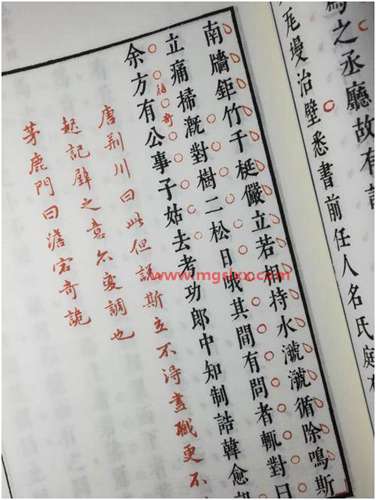 焉之丞廳故有記
墁治壁悉書前任人名氏庭
南牆鉅竹千梃儼立若相持水㶁㶁循除鳴斯
立痛掃溉對樹二松日哦其間有問者輒對曰
余方有公事子姑去考功郎中知制誥韓愈
唐荊川曰此但說斯立不得盡職更不
起記壁之意亦變調也
茅鹿門曰澹宕奇詭